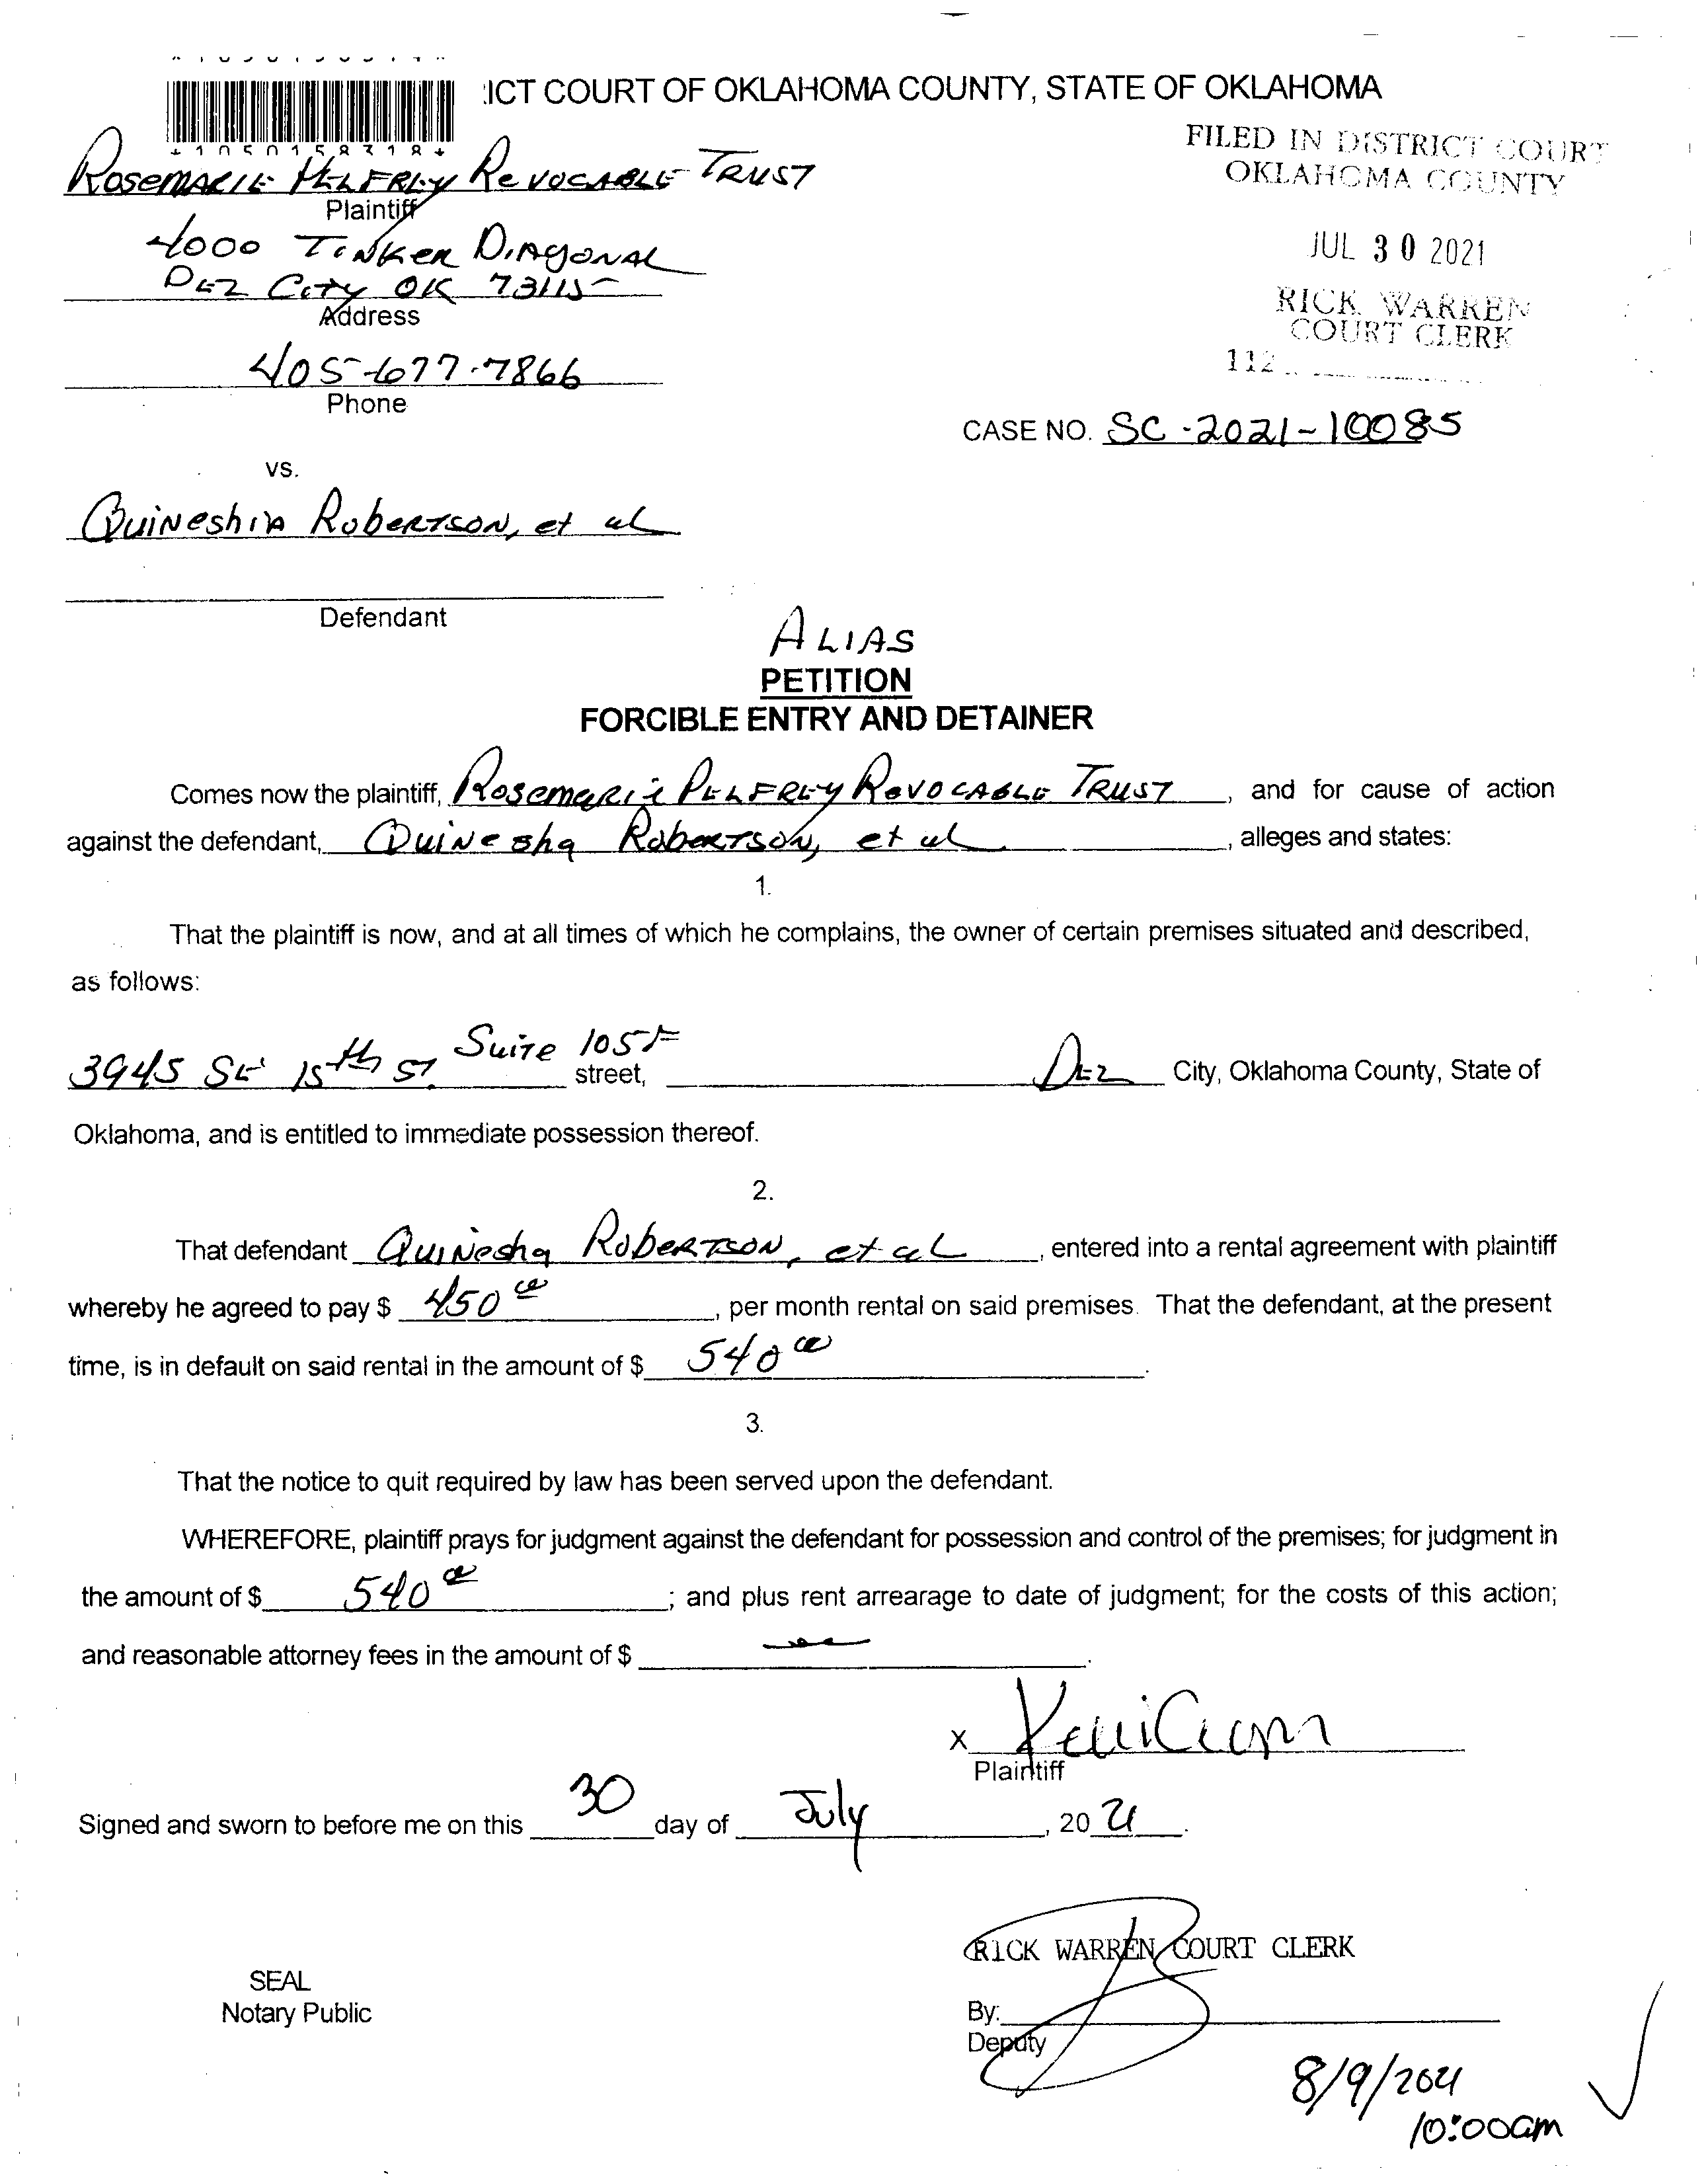 ICT COURT OF OKLAHOMA COUNTY, STATE OF OKLAHOMA
FILED IN DISTRICT COURT
OKLAHOMA COUNTY
JUL 30 2021
RICK WARREN
COURT CLERK
112
Rosemarie Pelfrey Revocable Trust
Plaintiff
4000 Tinker Diagonal
Del City OK 73115
Address
405-677-7866
Phone
CASE NO. SC-2021-10085
vs.
Quineshia Robertson, et al
Defendant
ALIAS
PETITION
FORCIBLE ENTRY AND DETAINER
Comes now the plaintiff, Rosemarie Pelfrey Revocable Trust, and for cause of action
against the defendant, Quinesha Robertson, et al, alleges and states:
1.
That the plaintiff is now, and at all times of which he complains, the owner of certain premises situated and described,
as follows:
3945 SE 15th St. Suite 105F street, Del City, Oklahoma County, State of
Oklahoma, and is entitled to immediate possession thereof.
2.
That defendant Quinesha Robertson, et al, entered into a rental agreement with plaintiff
whereby he agreed to pay $ 450 00, per month rental on said premises. That the defendant, at the present
time, is in default on said rental in the amount of $ 540 00.
3.
That the notice to quit required by law has been served upon the defendant.
WHEREFORE, plaintiff prays for judgment against the defendant for possession and control of the premises; for judgment in
the amount of $ 540 00; and plus rent arrearage to date of judgment; for the costs of this action;
and reasonable attorney fees in the amount of $
X
Plaintiff
Signed and sworn to before me on this 30 day of July, 20 21.
RICK WARREN COURT CLERK
SEAL
Notary Public
By:
Deputy
8/9/2021
10:00am